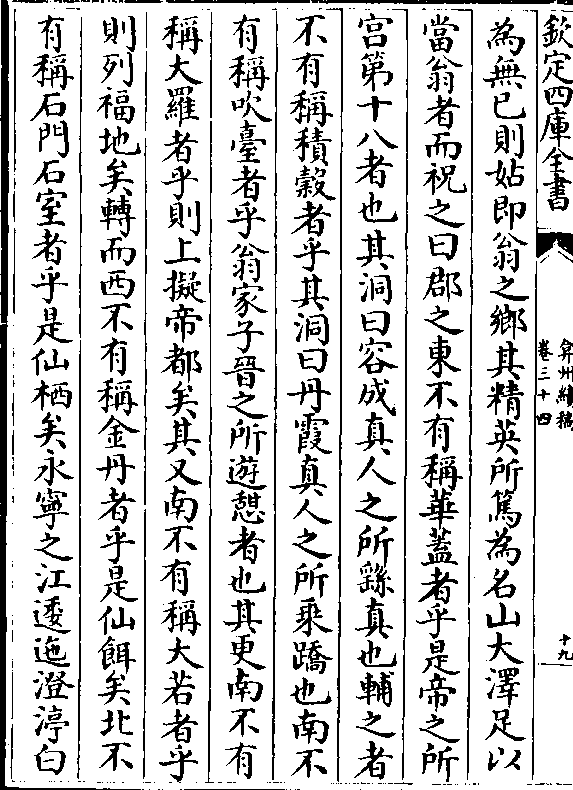 欽定四庫全書
弇州續稿
卷三十四
十九
為無已則姑即翁之鄉其精英所篤為名山大澤足以
當翁者而祝之曰郡之東不有稱華蓋者乎是帝之所
宫第十八者也其洞曰容成真人之所繇真也輔之者
不有稱積穀者乎其洞曰丹霞真人之所乘蹻也南不
有稱吹臺者乎翁家子晉之所遊憇者也其更南不有
稱大羅者乎則上擬帝都矣其又南不有稱大若者乎
則列福地矣轉而西不有稱金丹者乎是仙餌矣北不
有稱石門石室者乎是仙栖矣永寧之江逶迤澄渟白